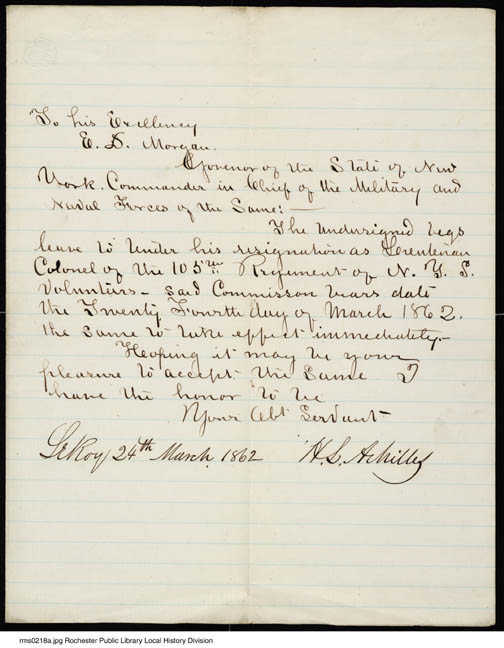 To his Excellency
E. D. Morgan.
Govenor of the State of New
York. Commander in Chief of the Military and
Naval Forces of the Same: —
The Undersigned begs
leave to tender his resignation as Lieutenan
Colonel of the 105th Regiment of N. Y. S.
Volunters - Said Commisson bears date
the Twenty Fourth day of March 1862.
the same to take effect immediately. -
Hoping it may be your
pleasure to accept the same I
have the honor to be
Your Obt Servant
LeRoy 24th March, 1862 H. L. Achilles
rms0218a.jpg Rochester Public Library Local History Division